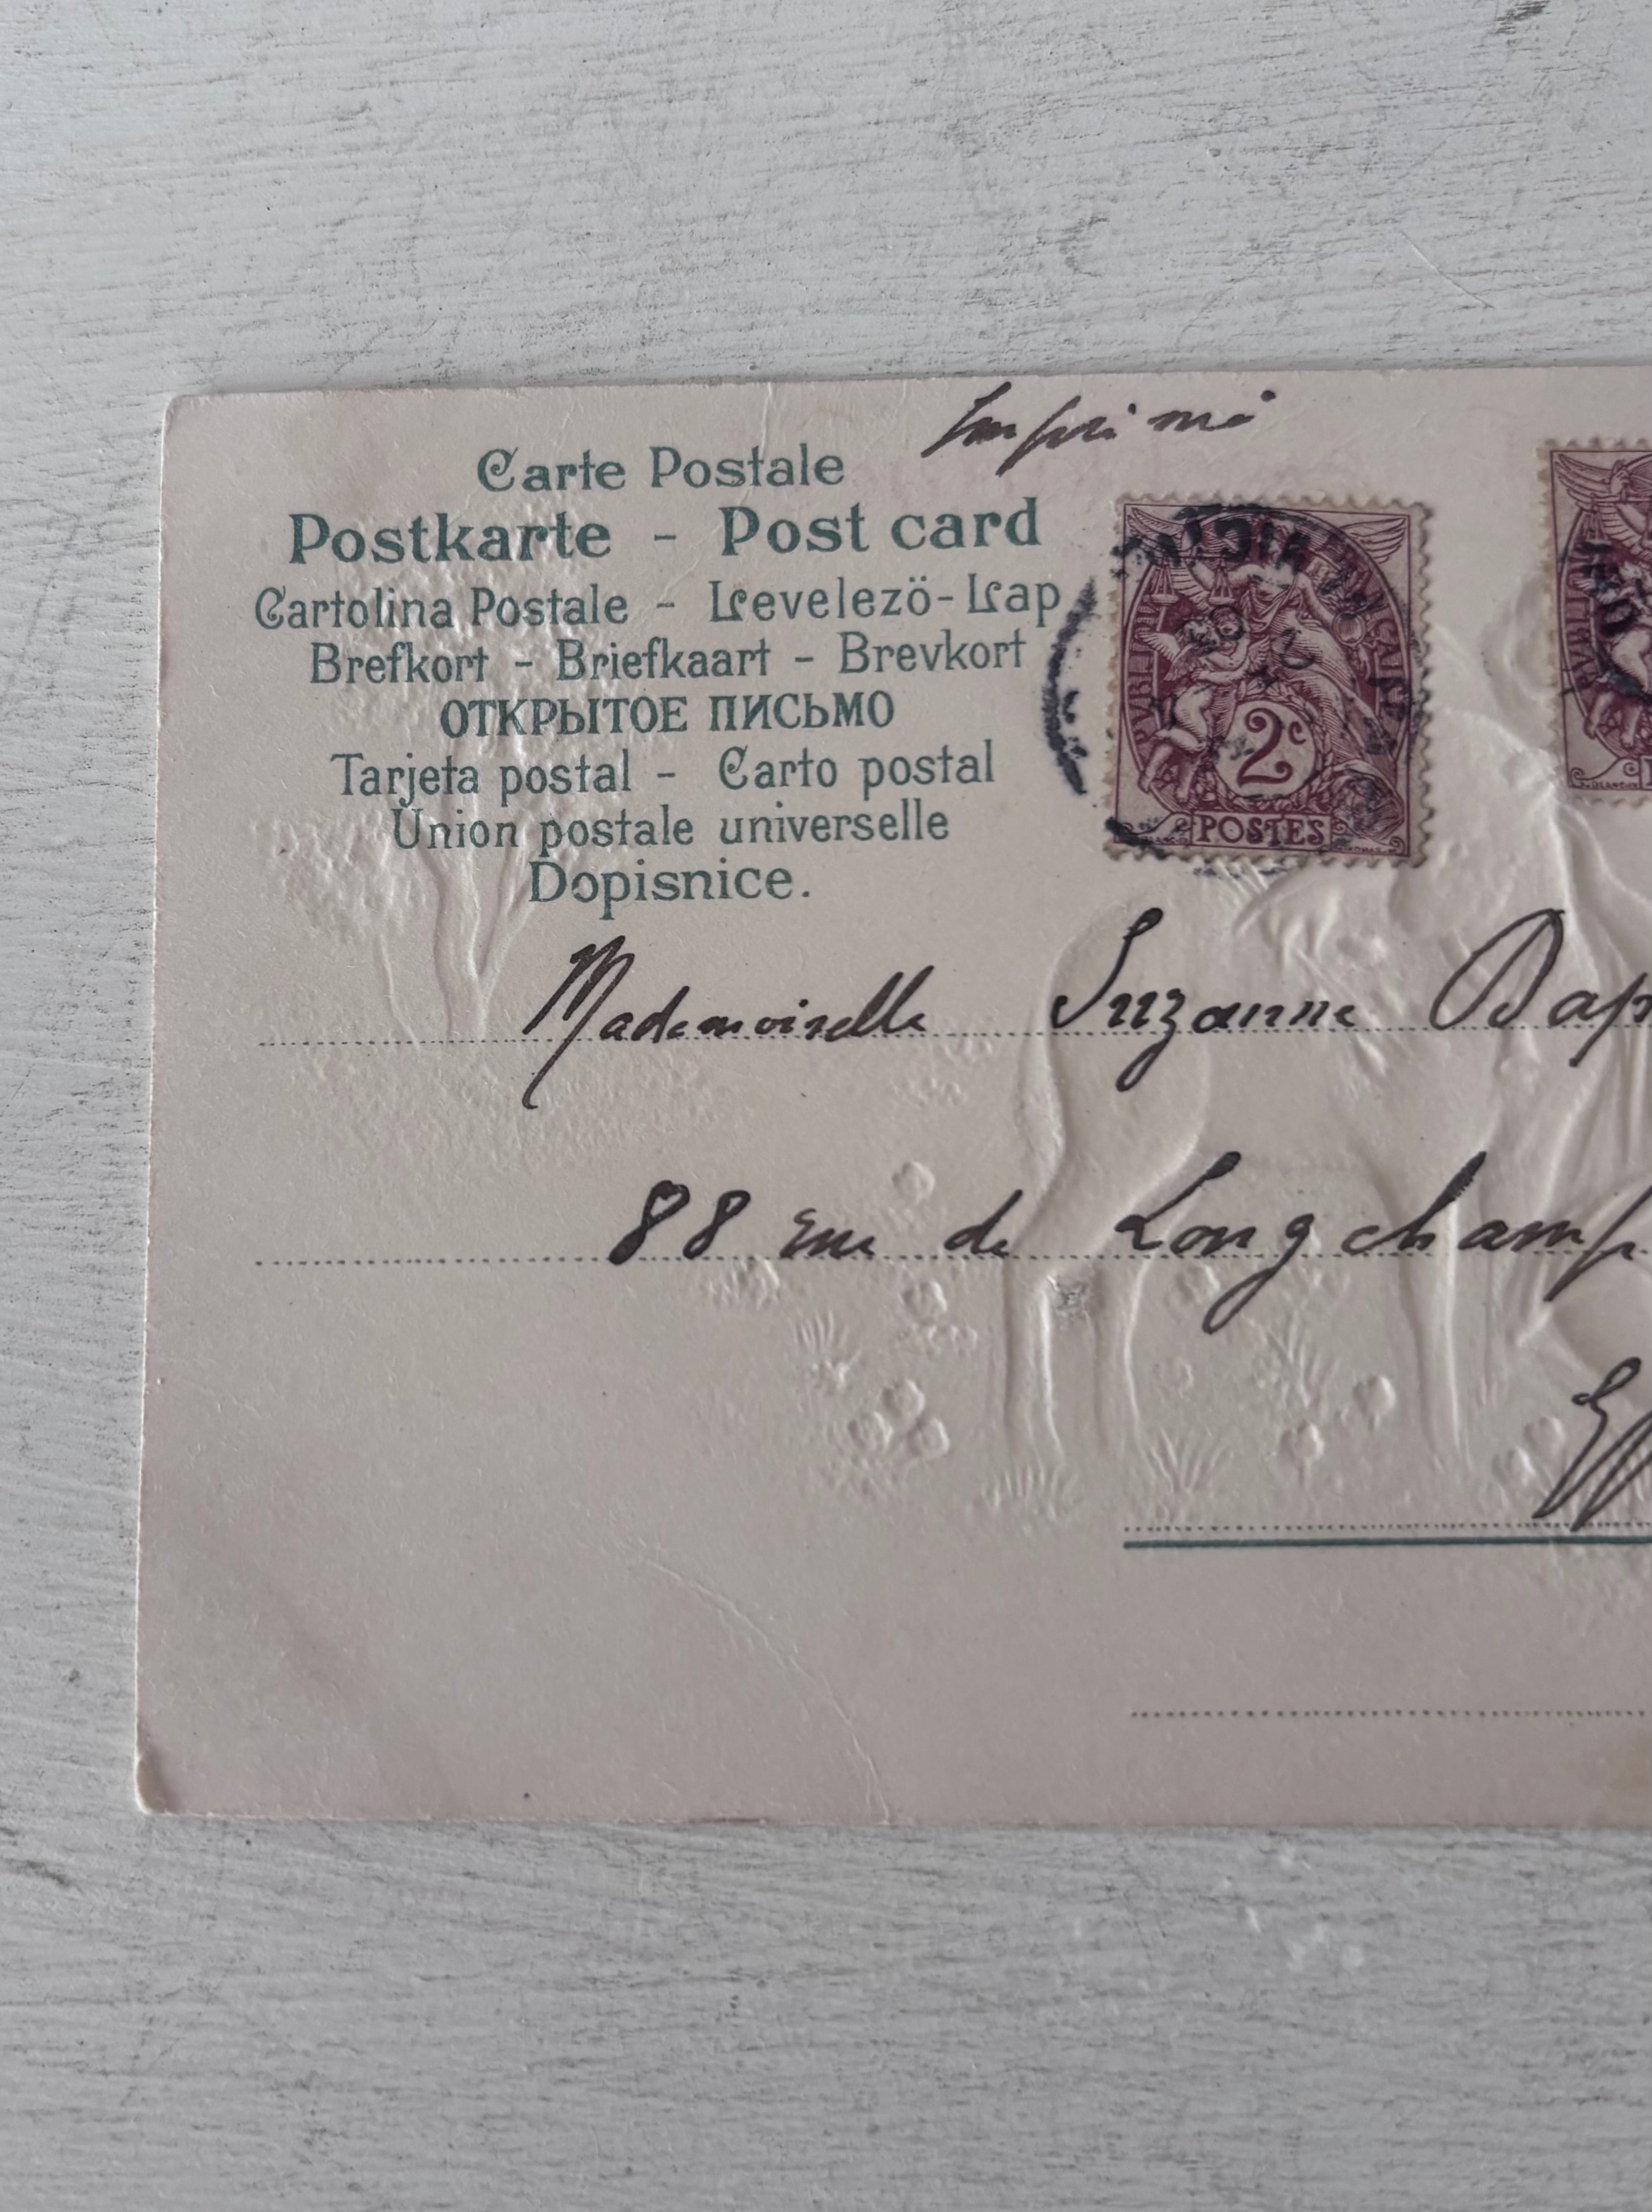 Imprimé
Carte Postale
Postkarte - Post card
Cartolina Postale - Levelezö-Lap
Brefkort - Briefkaart - Brevkort
ОТКРЫТОЕ ПИСЬМО
Tarjeta postal - Carto postal
Union postale universelle
Dopisnice.
2c
POSTES
Mademoiselle Suzanne Dap
88 rue de Longchamp